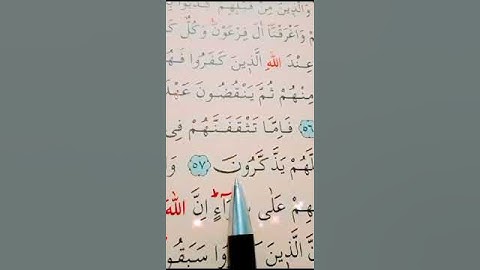 وَالَّذِينَ مِنْ قَبْلِهِمْ كَذَّبُوا
وَاَغْرَقْنَٓا اٰلَ فِرْعَوْنَۚ وَكُلٌّ
عِنْدَ اللّٰهِ الَّذِينَ كَفَرُوا
مِنْهُمْ ثُمَّ يَنْقُضُونَ
٥٦ فَاِمَّا تَثْقَفَنَّهُمْ فِي
يَذَّكَّرُونَ ٥٧
عَلٰى اِنَّ اللّٰهَ
الَّذِينَ سَبَقُوا